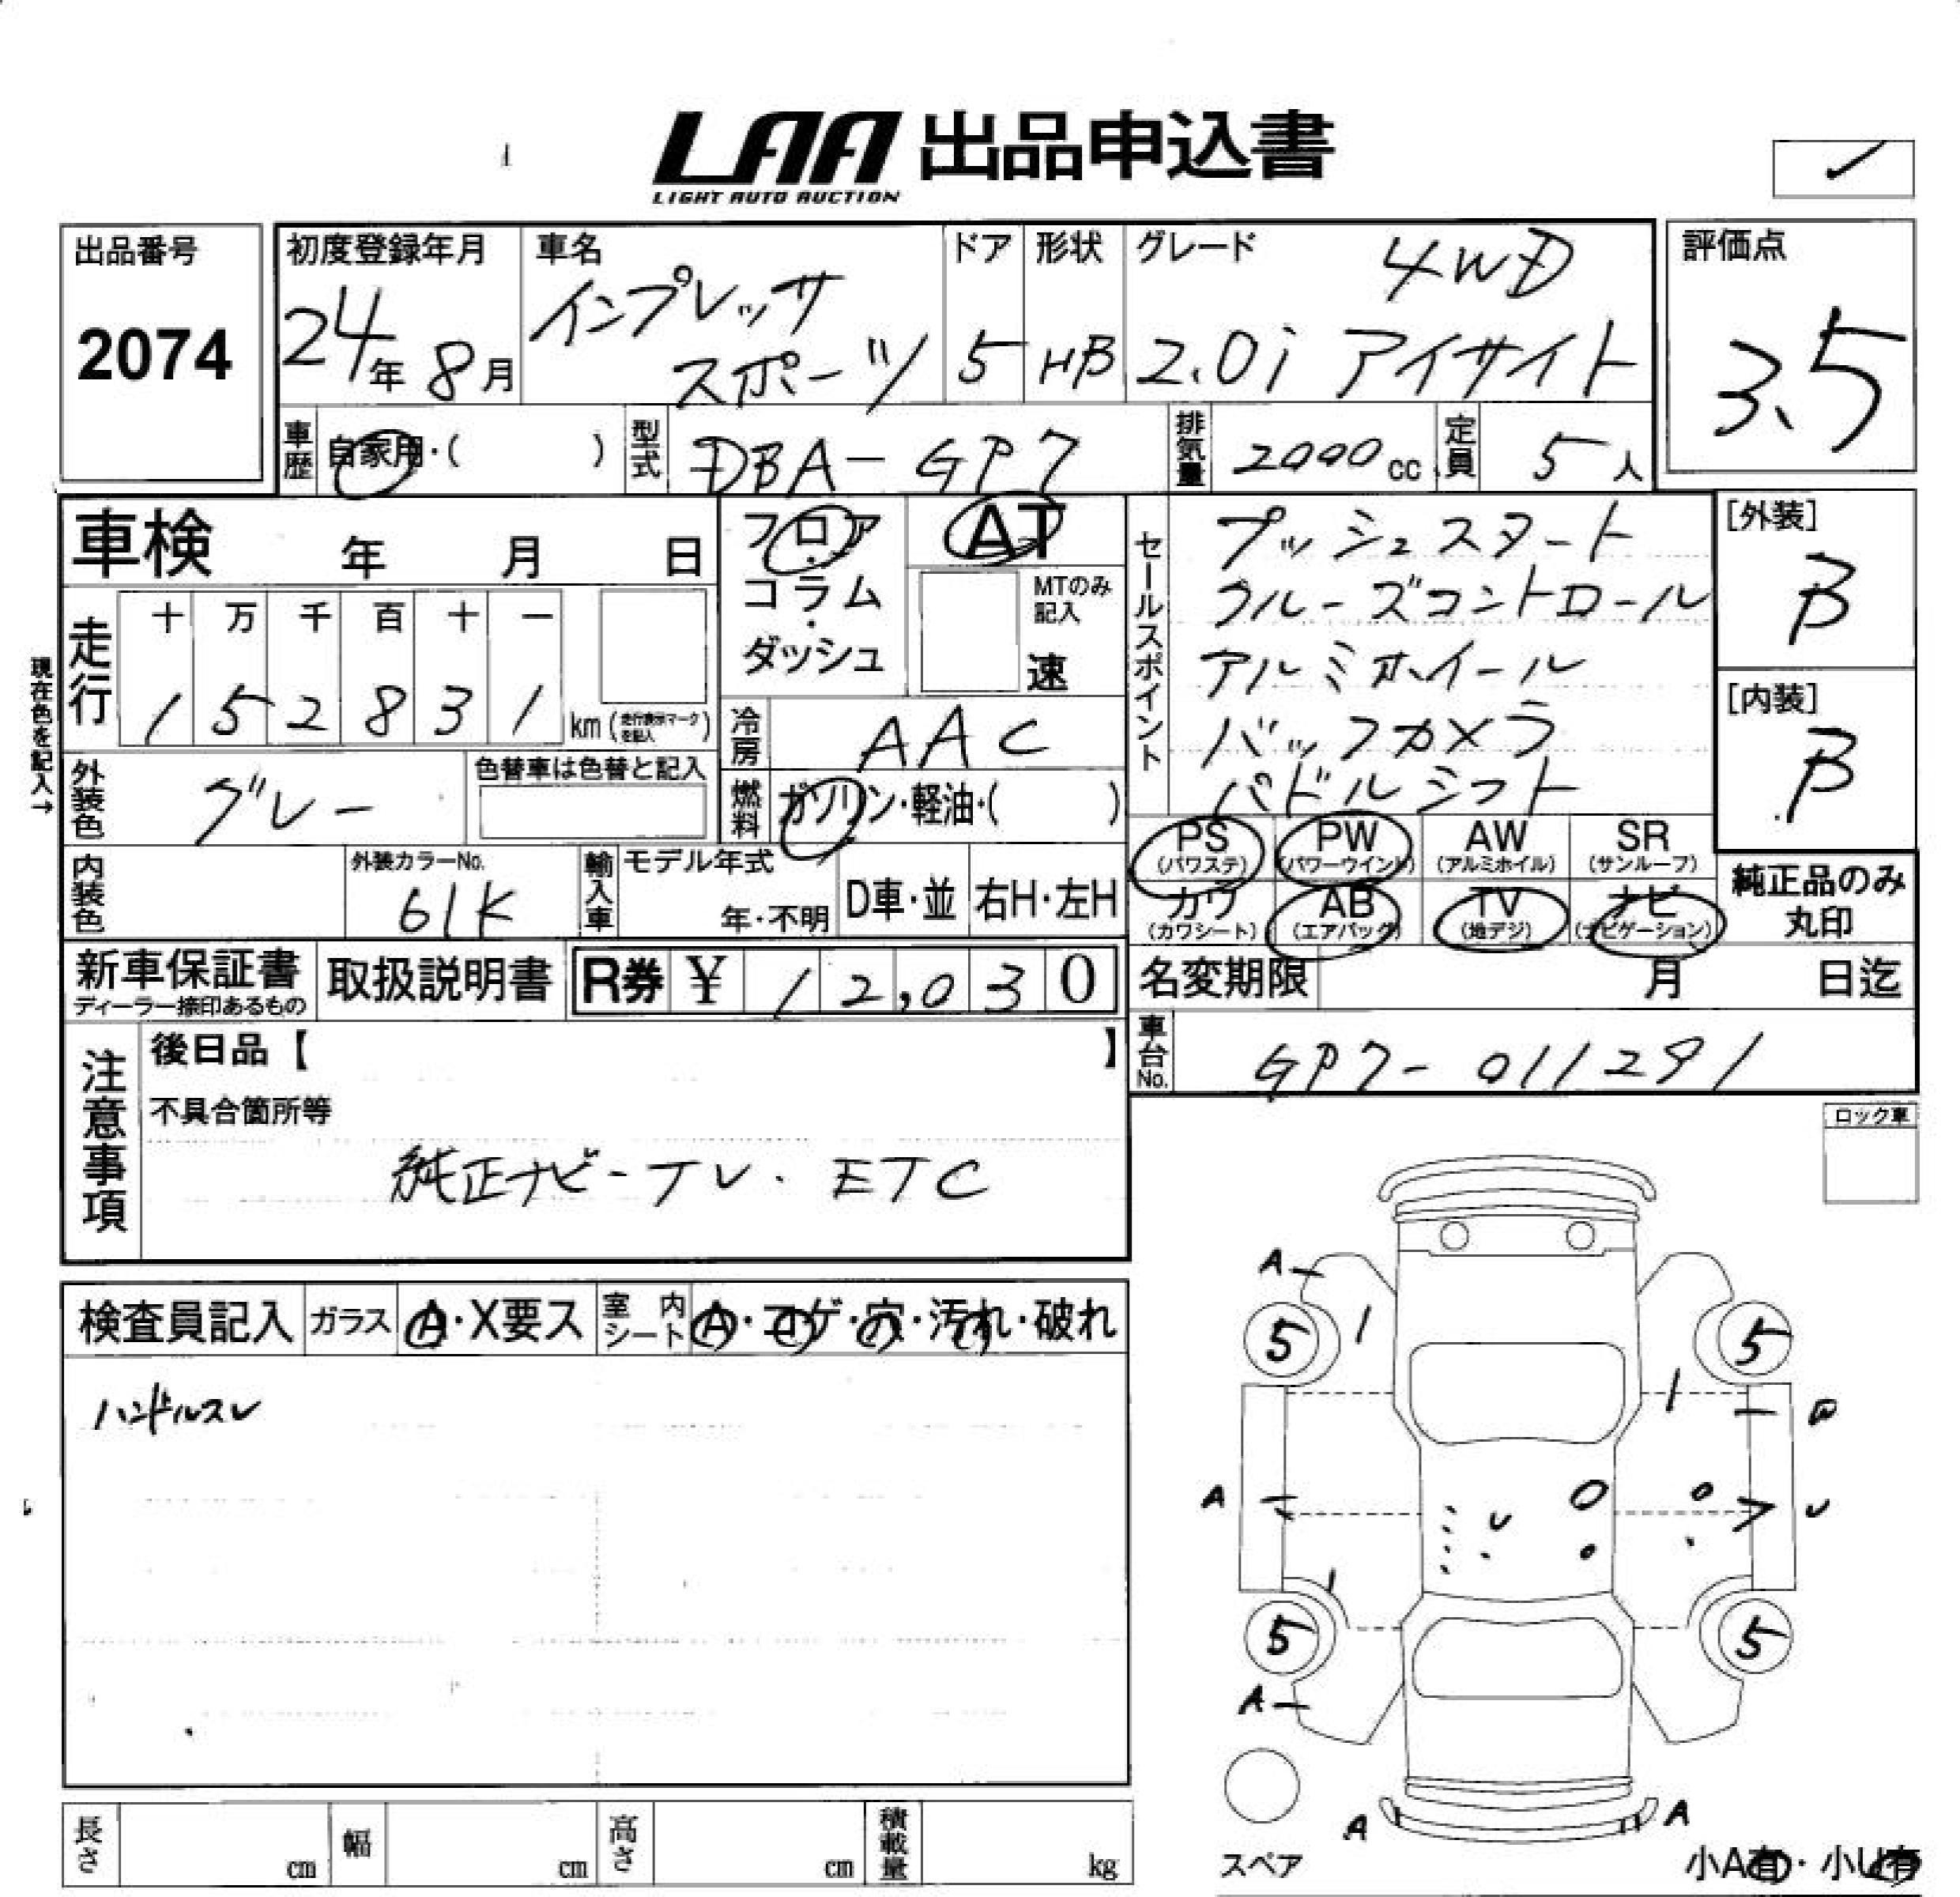 LAA 出品申込書
LIGHT AUTO AUCTION
出品番号
2074
初度登録年月
24年8月
車名
インプレッサ
スポーツ
ドア
5
形状
HB
グレード
4WD
2.0i アイサイト
評価点
3.5
車歴
自家用・( )
型式
DBA-GP7
排気量
2000cc
定員
5人
車検 年 月 日
走行
十 万 千 百 十 一
1 5 2 8 3 1 km (走行表示マークを記入)
現在色を記入→
外装色
グレー
色替車は色替と記入
内装色
外装カラーNo.
61K
輸入車
モデル年式
年・不明
D車・並
右H・左H
フロア
・
コラム
・
ダッシュ
AT
MTのみ
記入
速
冷房
AAC
燃料
ガソリン・軽油・( )
セールスポイント
プッシュスタート
クルーズコントロール
アルミホイール
バックカメラ
パドルシフト
[外装]
B
[内装]
B
PS
(パワステ)
PW
(パワーウインド)
AW
(アルミホイル)
SR
(サンルーフ)
カワ
(カワシート)
AB
(エアバック)
TV
(地デジ)
ナビ
(ナビゲーション)
純正品のみ
丸印
新車保証書
ディーラー捺印あるもの
取扱説明書
R券 ¥ 12,030
名変期限 月 日迄
車台No.
GP7-011291
注意事項
後日品【 】
不具合箇所等
純正ナビ-TV・ETC
ロック車
検査員記入
ガラス
A・X要ス
室内シート
A・コゲ・穴・汚れ・破れ
ハンドルスレ
A
5
5
A
U
U
5
5
A
A
A
スペア
小A有・小U有
長さ cm
幅 cm
高さ cm
積載量 kg